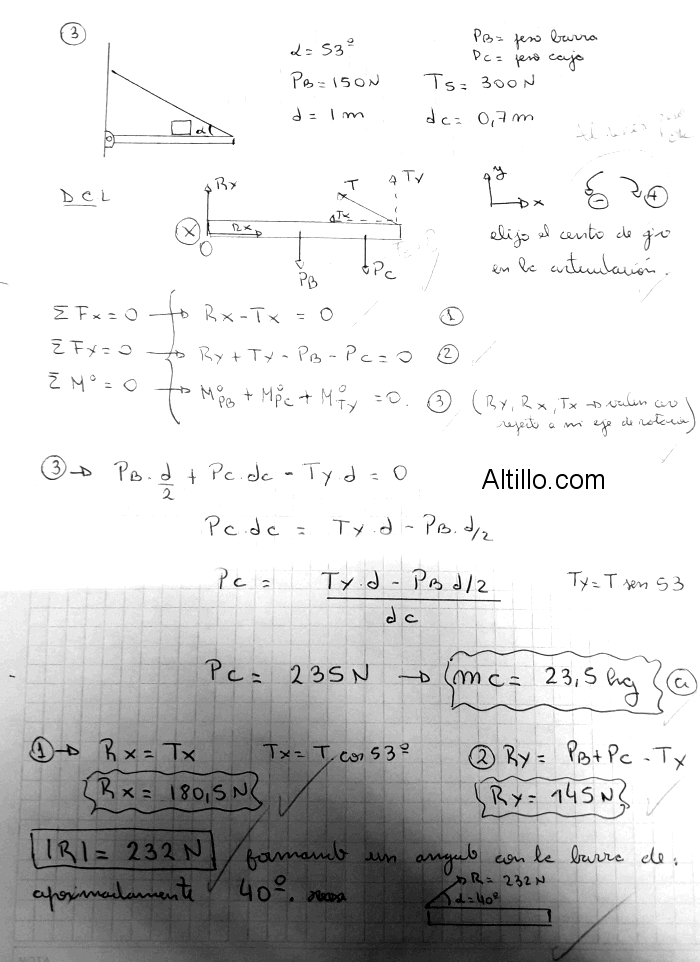 3
α = 53º
PB = peso barra
PC = peso caja
PB = 150N TS = 300N
d = 1m dc = 0,7m
α
DCL
Rx T Ty
Tx
Rx
x
O
PB PC
y
x
- +
elijo el centro de giro
en la articulación.
ΣFx = 0 → Rx - Tx = 0 1
ΣFy = 0 → Ry + Ty - PB - PC = 0 2
ΣMº = 0 → MºPB + MºPC + MºTy = 0. 3 (Ry, Rx, Tx → valen cero
respecto a mi eje de rotación)
3 → PB . d/2 + PC . dc - Ty d = 0
Altillo.com
PC . dc = Ty . d - PB . d/2
PC = Ty . d - PB d/2 / dc Ty = T sen 53
PC = 235N → mc = 23,5 kg a
1 → Rx = Tx Tx = T . cos 53º 2 Ry = PB + PC - Tx
Rx = 180,5N Ry = 145N
|R| = 232N formando un angulo con la barra de:
aproximadamente 40º.
R = 232N
α = 40º